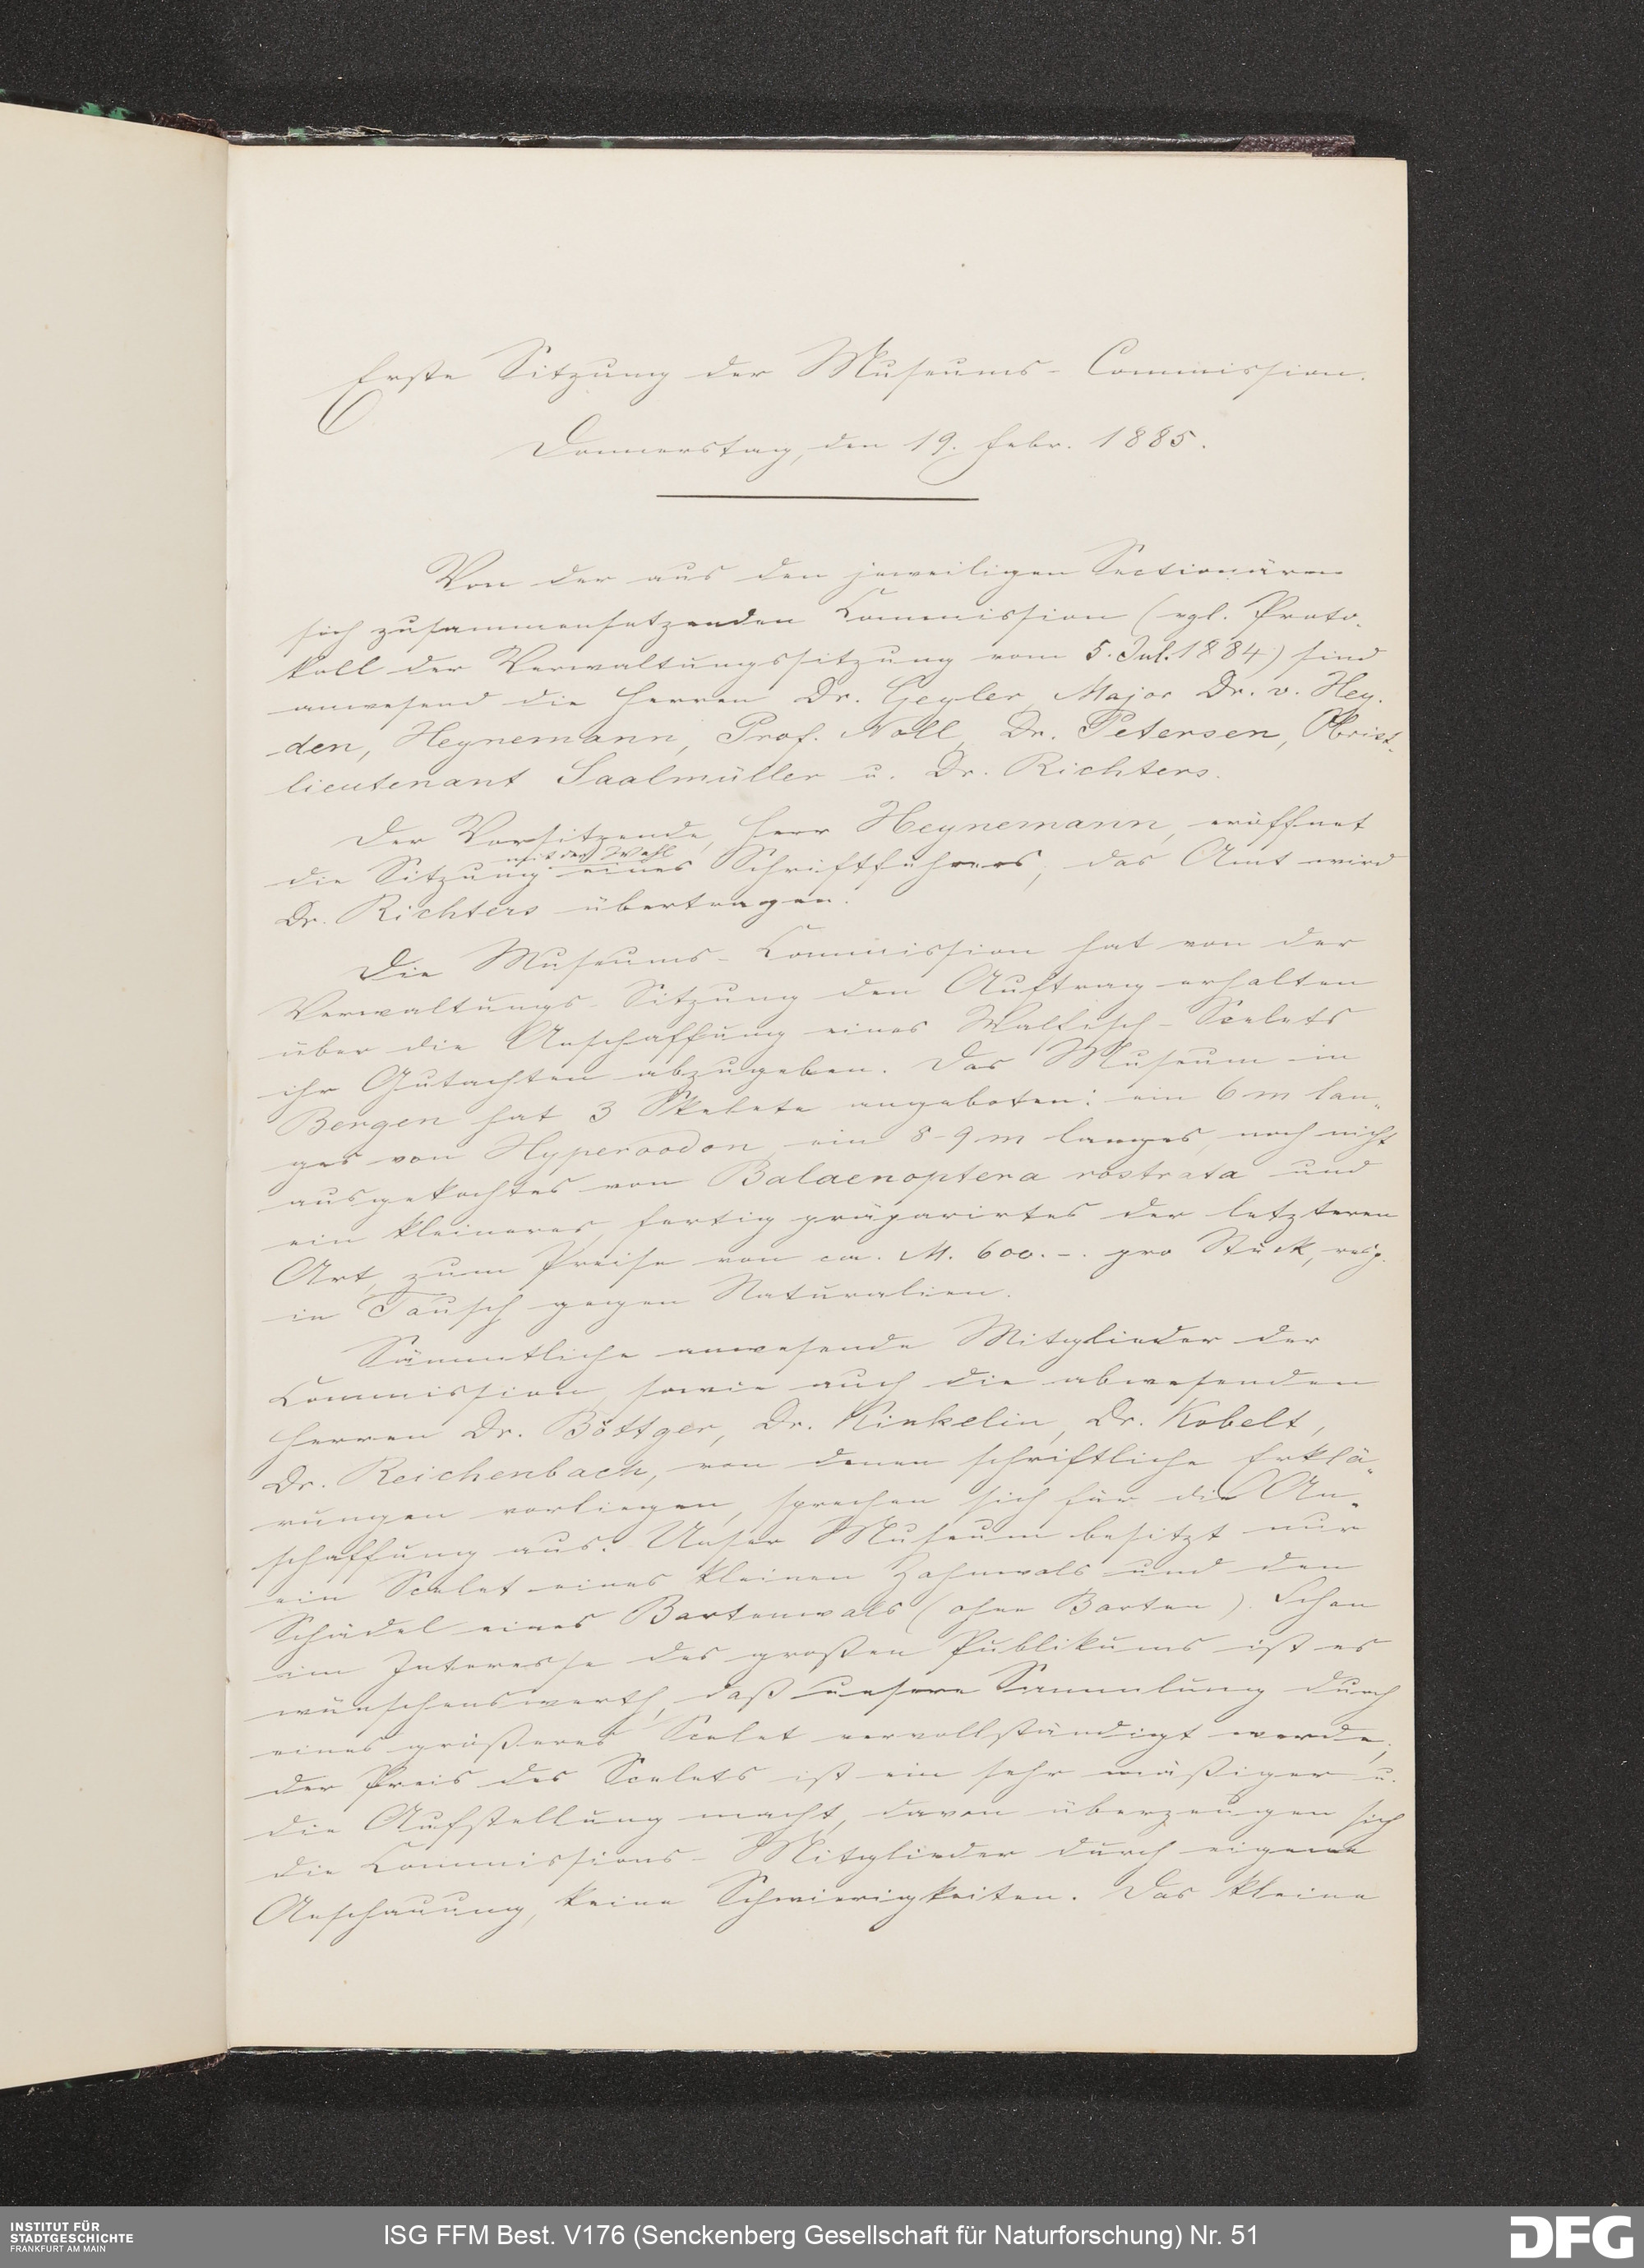 Erste Sitzung der Museums-Commission.
Donnerstag, den 19. Febr. 1885.
Von der aus den jeweiligen Sectionären
sich zusammensetzenden Commission (vgl. Proto-
koll der Verwaltungssitzung vom 5. Jul. 1884) sind
anwesend die Herren Dr. Geyler, Major Dr. v. Hey-
den, Heynemann, Prof. Noll, Dr. Petersen, Obrist-
lieutenant Saalmüller u. Dr. Richters.
Der Vorsitzende, Herr Heynemann, eröffnet
mit der Wahl
die Sitzung eines Schriftführers, das Amt wird
Dr. Richters übertragen.
Die Museums-Commission hat von der
Verwaltungs-Sitzung den Auftrag erhalten
über die Anschaffung eines Walfisch-Scelets
ihr Gutachten abzugeben. Das Museum in
Bergen hat 3 Skelete angeboten: ein 6 m lan-
ges von Hyperoodon, ein 8-9 m langes, noch nicht
ausgekochtes von Balaenoptera rostrata und
ein kleineres, fertig präparirtes der letzteren
Art, zum Preise von ca. M. 600.-. pro Stück, resp.
in Tausch gegen Naturalien.
Sämmtliche anwesende Mitglieder der
Commission, sowie auch die abwesenden
Herren Dr. Böttger, Dr. Kinkelin, Dr. Kobelt,
Dr. Reichenbach, von denen schriftliche Erklä-
rungen vorliegen, sprechen sich für die An-
schaffung aus. Unser Museum besitzt nur
ein Scelet eines kleinen Zahnwals und den
Schädel eines Bartenwals (ohne Barten). Schon
im Interesse des großen Publikums ist es
wünschenswerth, daß unsere Sammlung durch
eines größeres Scelet vervollständigt werde,
der Preis des Scelets ist ein sehr mäßiger u.
die Aufstellung macht, davon überzeugen sich
die Commissions-Mitglieder durch eigene
Anschauung, keine Schwierigkeiten. Das kleine
INSTITUT FÜR
STADTGESCHICHTE
FRANKFURT AM MAIN
ISG FFM Best. V176 (Senckenberg Gesellschaft für Naturforschung) Nr. 51
DFG